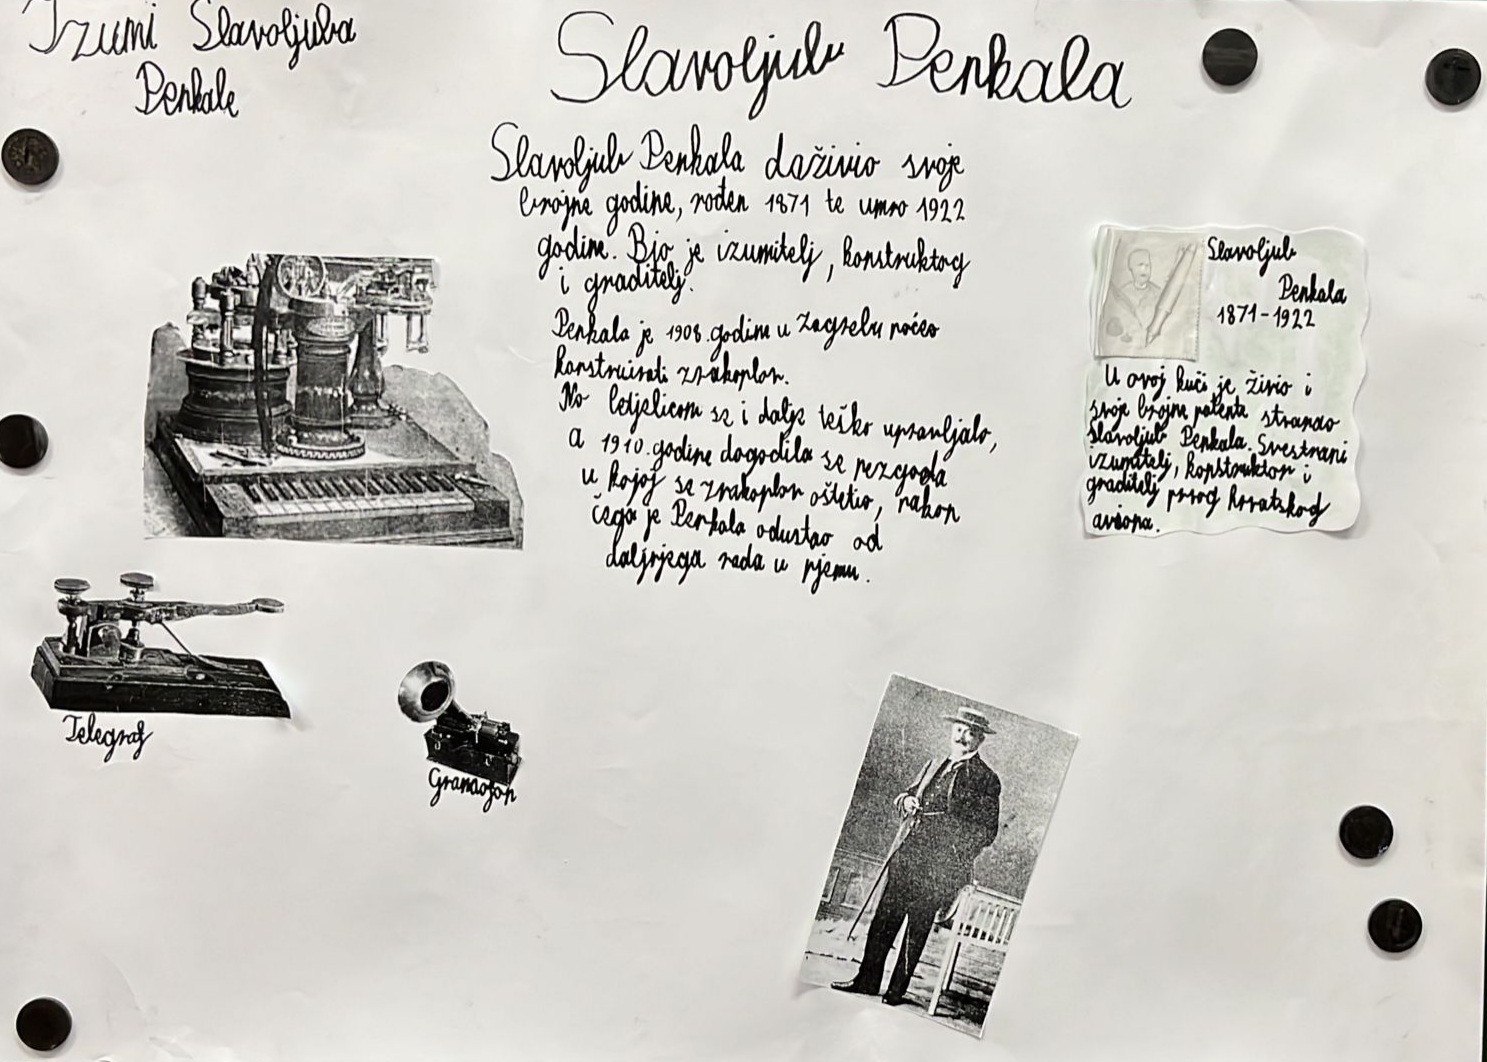 Izumi Slavoljuba
Penkale
Slavoljub Penkala
Slavoljub Penkala doživio svoje
brojne godine, rođen 1871 te umro 1922
godine. Bio je izumitelj, konstruktor
i graditelj.
Penkala je 1908. godine u Zagrebu počeo
konstruirati zrakoplov.
No letjelicom se i dalje teško upravljalo,
a 1910. godine dogodila se nezgoda
u kojoj se zrakoplov oštetio, nakon
čega je Penkala odustao od
daljnjega rada u njemu.
Slavoljub
Penkala
1871-1922
U ovoj kući je živio i
svoje brojne patente stvarao
Slavoljub Penkala. Svestrani
izumitelj, konstruktor i
graditelj prvog hrvatskog
aviona.
Telegraf
Gramofon